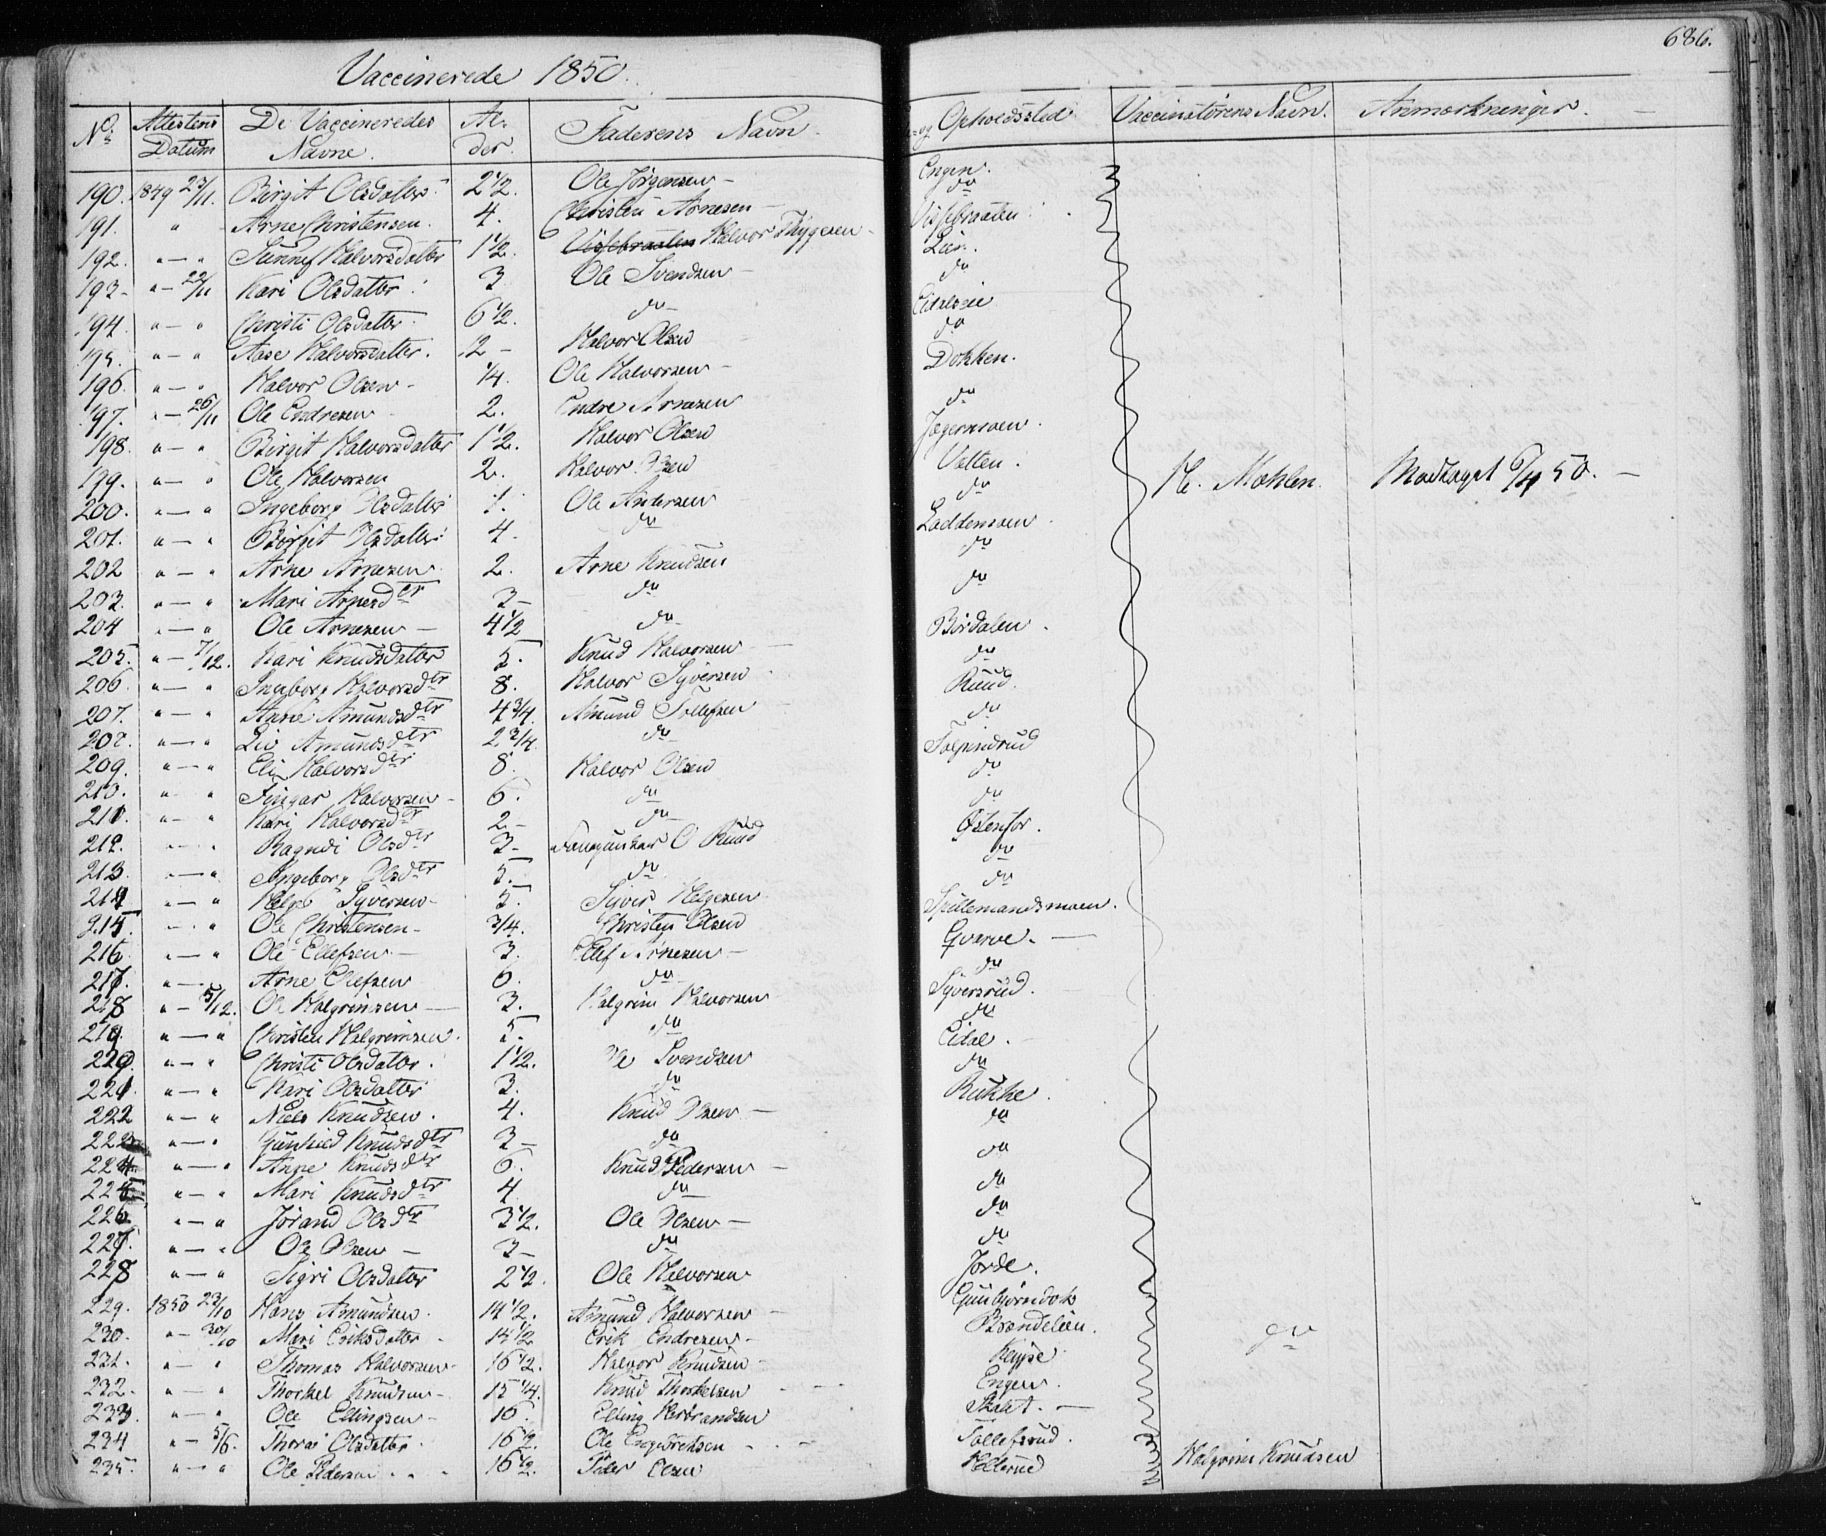 686.
Vaccinerede 1850.
No. Attestens Datum De Vaccineredes Navne. Alder. Faderens Navn og Opholdssted Vaccinatørens Navn. Anmærkninger.
190. 1849 23/11. Birgit Olsdatter. 2 1/2. Ole Jörgensen Engen.
191. " Arne Christensen. 4. Christen Arnesen do
192. " — " Sunnef Halvorsdatter 1 1/2. Halvor Thygesen
193. " — 22/11 Kari Olsdatter 3 Ole Svendsen
194. " — " Christi Olsdatter. 6 1/2. do
195. " — " Aase Halvorsdatter. 2 — Halvor Olsen
196. " — " Halvor Olsen 1/4. Ole Halvorsen Dokken.
197. " — 26/11 Ole Endresen 2. Endre Arnesen
198. " — " Birgit Halvorsdatter 1 1/2. Halvor Olsen
199. " — " Ole Halvorsen 2. Halvor Olsen H. Mæhlen. Modtaget 6/4 50. —
200. " — " Ingeborg Olsdatter 1. Ole Andersen do
201. " — " Birgit Olsdatter 4. do
202 " — " Arne Arnesen 2. Arne Knudsen do
203. " — " Mari Arnesdtr 3 — do do
204 " — " Ole Arnesen — 4 1/2 do
205. " — 7/12. Kari Knudsdatter 5. Knud Halvorsen do
206. " — " Ingeborg Halvorsdtr 8. Halvor Syversen Ruud.
207. " — " Amundsdtr 4 3/4. Amund Tollefsen do
208. " — " Liv Amundsdtr 2 3/4. do
209. " — " Eli Halvorsdtr 8. Halvor Olsen do
210. " — " Halvorsen 6. do do
211. " — " Kari Halvorsdtr 2 — do
212. " — " Ragndi Olsdtr 3 — O Ruud do
213. " — " Ingeborg Olsdtr 5. do do
214 " — " Helge Syversen 5. Syver Helgesen Spillemandsmoen.
215 " — " Ole Christensen 3/4. Christen Olsen Qvarve.
216 " — " Ole Ellefsen 3. Ellef Arnesen do
217. " — " Arne Ellefsen 6. do Syversrud.
218 " — 5/12. Ole Halgrimsen 3. Halgrim Halvorsen do
219. " — " Christen Halgrimsen. 5. do Eidal.
220. " — " Christi Olsdatter. 1 1/2. Ole Svendsen do
221. " — " Kari Olsdatter 3. do Rukke.
222 " — " Niels Knudsen. 4. Knud Olsen do
223 " — " Gunhild Knudsdtr 3 — do do
224 " — " Anne Knudsdtr 6. Knud Pedersen
225 " — " Mari Knudsdtr 4 do do
226 " — " Jørand Olsdtr 3 1/2. Ole Olsen — do
227. " — " Ole Olsen 3 — do do
228 " — " Sigri Olsdatter 2 1/2. Ole Halvorsen Jorde.
229. 1850 23/10 Hans Amundsen. 14 1/2. Amund Halvorsen
230. " — 30/10 Mari Eriksdatter 14 1/2 Erik Endresen Brændelien. do
231. " — " Thomas Halvorsen 16 1/2. Halvor Knudsen
232. " — " Thorkel Knudsen 15 1/4. Knud Thorkelsen Engen.
233. " — " Ole Ellingsen 16. Elling Herbrandsen
234 " — 5/6. Olsdatter 16 1/2. Ole Engebretsen Tollefsrud.
235. " — " Ole Pedersen 16 1/2. Peder Olsen Halgrim Knudsen